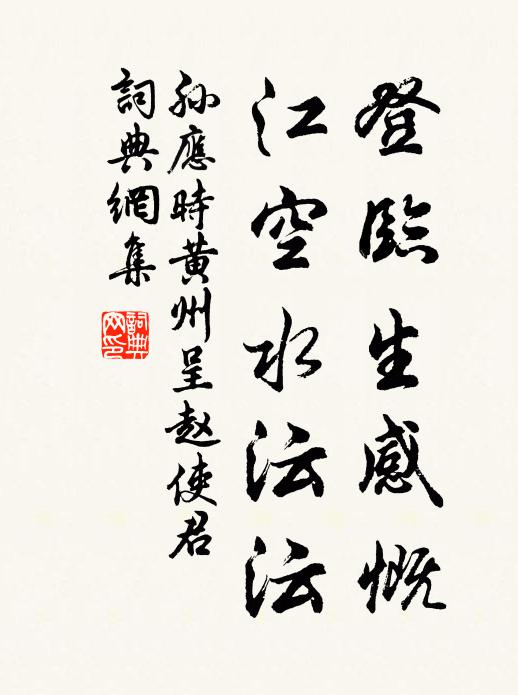 登臨生感慨
江空水沄沄
孙應時黄州呈赵使君
詞典網集
詞典网印